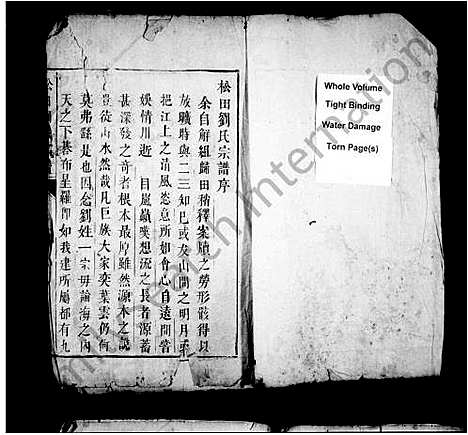 松田劉氏宗譜序
余自解組歸田稍釋案牘之勞形骸得以
放曠時與二三知己或友山間之明月或
挹江上之清風恣意所如會心自遠間嘗
娛情川逝目崑巔嘆想流之長者源蓄
甚深發之奇者根本最厚雖然源木之說
豈徒山水然哉凡巨族大家奕葉雲仍何
莫弗繇是也因念劉姓一宗毋論海之內
天之下碁布星羅即如我建所屬都有九
Whole Volume
Tight Binding
Water Damage
Torn Page(s)